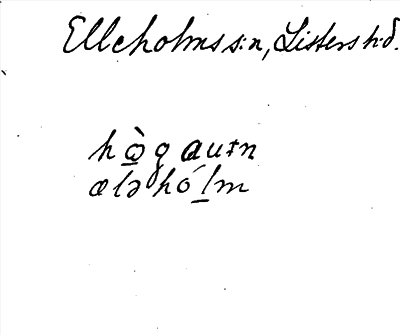 Elleholms s:n, Listers h:d.
hò̱g auɪn
ælə hó ḻm